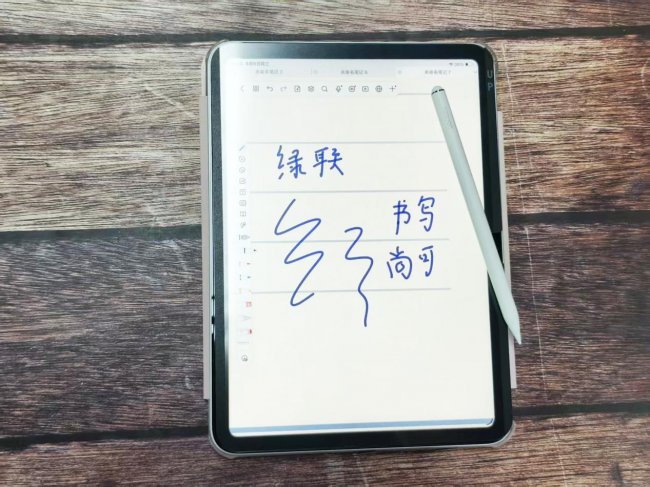 绿联
书写
尚可
UP